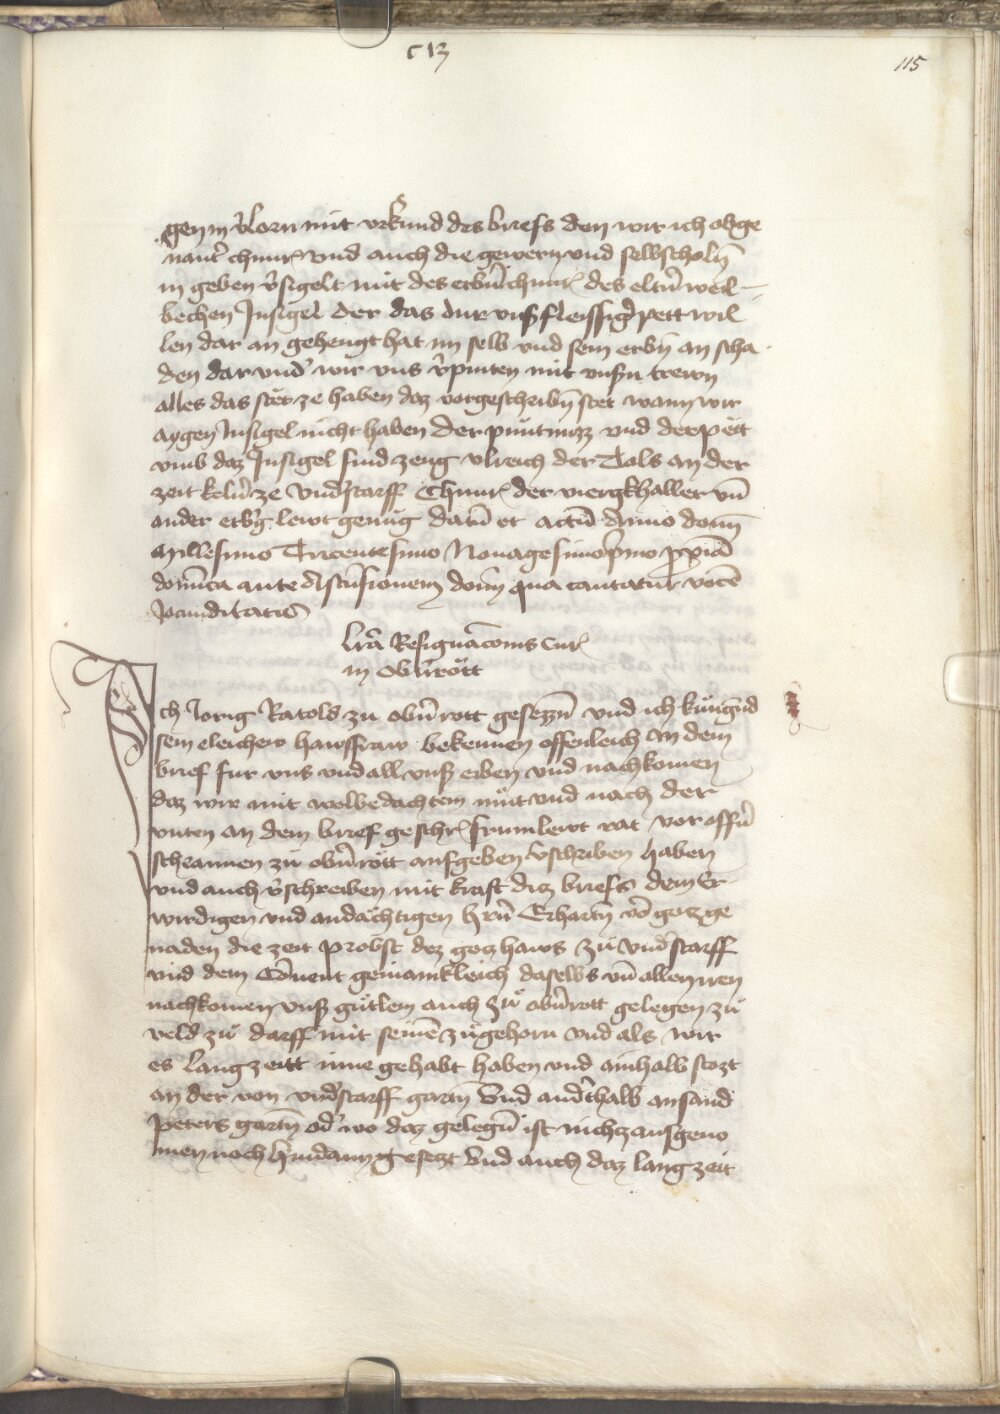 c 13
115
gen in v̄lorn mit vrkund des briefs den wir ich obge
nant̄ chunr̄ vnd auch die gewern vnd selbscholn̄
in geben v̄sigelt mit des erbn̄ chunr̄ des eltn̄ weil-
bechen Insigel der das dur vnsß fleissiḡ pett wil
len dar an gehengt hat im selb vnd sein erbn̄ an scha
den dar vnd' wir vns v̄pinten mit vnsn̄ trewn
alles das stët ze haben daz vorgeschribn̄ stet wann wir
aygen Insigel nicht haben der püntnuzz vnd der pëtt
vmb daz Insigel sind zeug vlreich der Dols an der
zeit keln̄ ze vnd'starff Chunr̄ der viergkhaller vn̄
ander erb'g lewt genug datū et actū Anno domī
Millesimo Tricentesimo Nonagesimo p̄mo p̄xīa
domīca ante Ascēsionem domī qua cantatur vocē
Jocunditatis
Lr̄a Resignac̄onis Cur̄
in Obn̄rött
Ich Jorig Ratold zu obn̄rott gesezzn̄ vnd ich kungund
sein eleichew hawsfraw bekennen offenleich an dem
brief fur vns vnd all vnsß erben vnd nachkomen
daz wir mit wolbedachtem müt vnd nach der
vnten an dem brief geschr̄ frumlewt rat vor offn̄
schrannen zu obn̄rött aufgeben v̄schriben haben
vnd auch v̄schreiben mit kraft diz briefs dem Er
wirdigen vnd andächtigen hrn̄ Erhartn̄ vō gotz ge
naden die zeit probst dez gotzhaws zu vnd'starff
vnd dem Cōuent gemainkleich daselbs vn̄ allen iren
nachkomen vnsß gütlein auch zů obn̄rott gelegen zů
veld zů darff mit seinē zůgehorn vnd als wir
es lang zeitt inne gehabt haben vnd ainhalb stozt
an der von vnd'starff gartn̄ vnd and'thalb an sand
Peters gartn̄ od' wo daz gelegn̄ ist nichz ausgeno
men noch hindann gesetzt vnd auch daz lang zeit